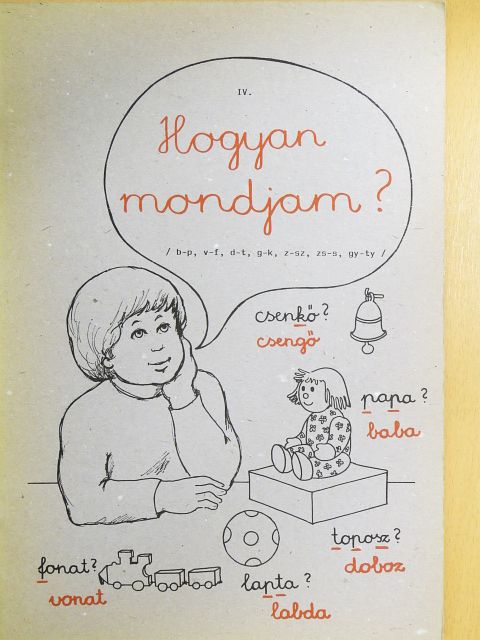 IV.
Hogyan
mondjam?
/ b-p, v-f, d-t, g-k, z-sz, zs-s, gy-ty /
csenkő?
csengő
papa?
baba
toposz?
doboz
fonat?
vonat
lapta?
labda